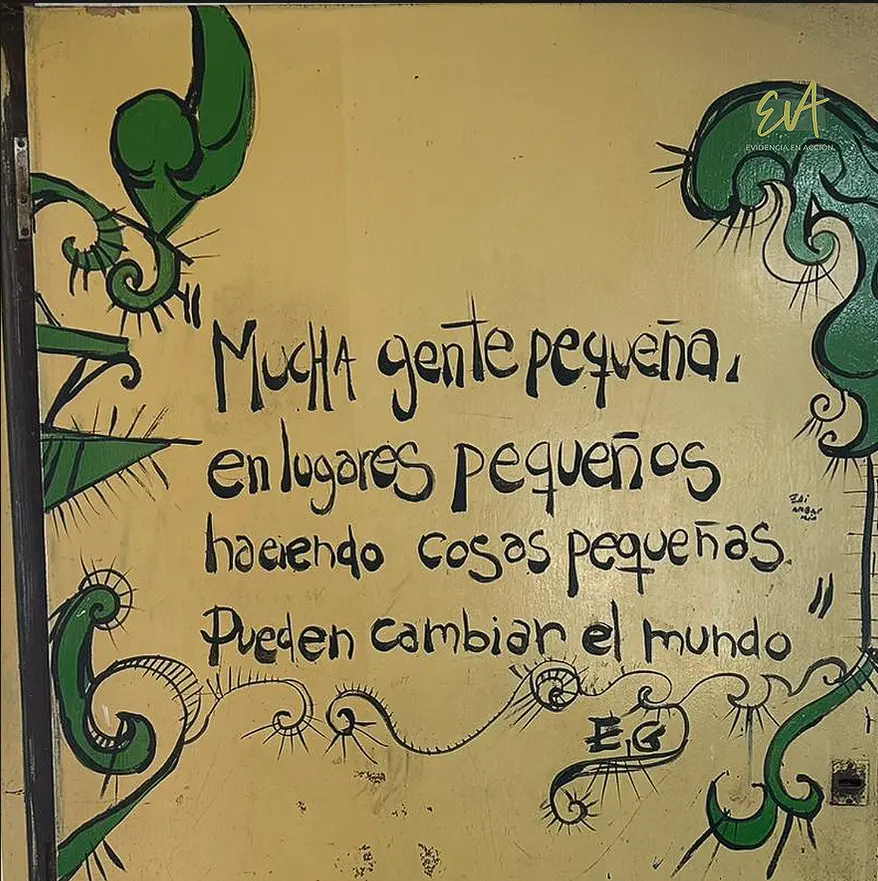 EVA
EVIDENCIA EN ACCIÓN
"MUCHA gente pequeña,
en lugares pequeños
haciendo cosas pequeñas.
Pueden cambiar el mundo"
E,G